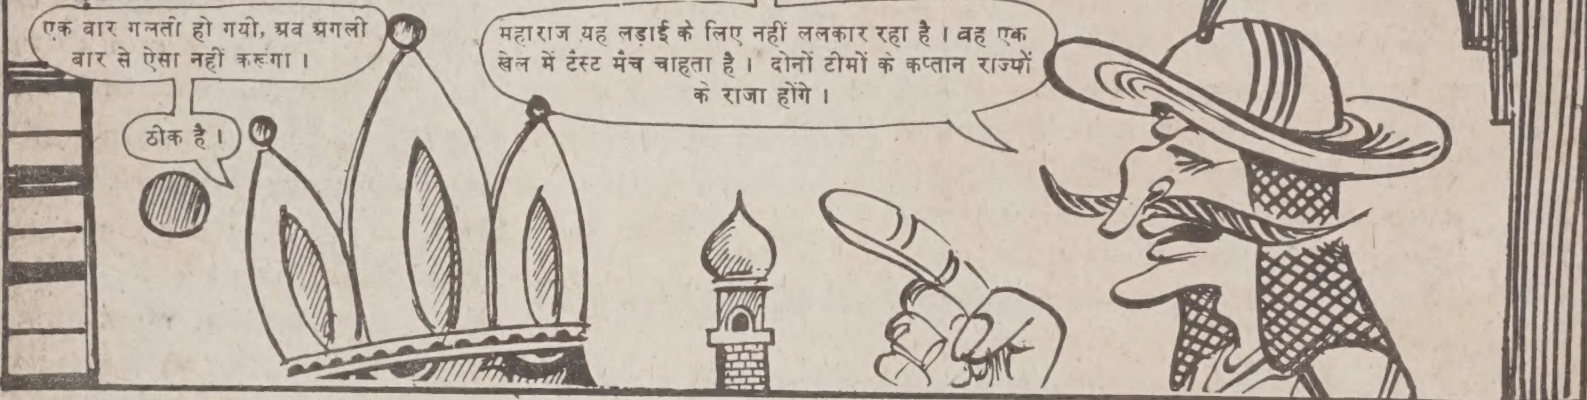 एक बार गलती हो गयी, अब अगली
बार से ऐसा नहीं करूंगा ।
ठीक है ।
महाराज यह लड़ाई के लिए नहीं ललकार रहा है । वह एक
खेल में टैस्ट मैच चाहता है । दोनों टीमों के कप्तान राज्यों
के राजा होंगे ।